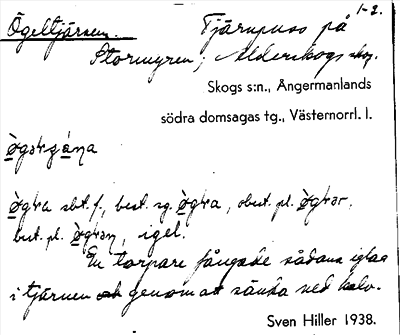 Ögeltjärnen. Tjärnpuss på 1-2.
Stormyren, Alderskogs skog.
Skogs s:n., Ångermanlands
södra domsagas tg., Västernorrl. l.
ògərgána
ògra sbt. f., best. sg. ògra, obest. pl. ògrər,
best. pl. ògrən, igel.
En torpare fångade sådana iglar
i tjärnen och genom att sänka ned halv.
Sven Hiller 1938.